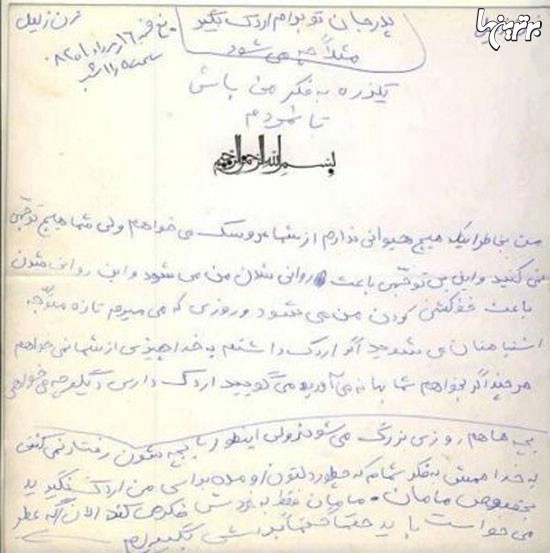 برترین‌ها
پدر جان تو برام اردک بگیر
مثلا چه می شود
یکذره به فکر من باش
تا نمردم
ساعت ۱۱ شب
بسم الله الرحمن الرحیم
من بخاطر اینکه هیچ حیوانی ندارم از شما عروسک می خواهم ولی شما هیچ توجهی
نمی کنید و این بی توجهی باعث روانی شدن من می شود و این روانی شدن
باعث خودکشی کردن من می شود و روزی که می میرم تازه متوجه
اشتباهتان می شوید اگر اردک داشتم به خدا چیزی از شما نمی خواهم
هر چند اگر بخواهم شما بهانه می آورید و می گویید اردک داری دیگر چه می خواهی
بچه ها هم روزی بزرگ می شوند ولی اینطور با بچه شون رفتار نمی کنند
به خدا همش به فکر شمام که چطور دلتون اومده برای من اردک نگیرید
بخصوص مامان. مامان فقط به خودش فکر می کند الان اگه عطر
می خواست باید حتما حتما براش بگیریم